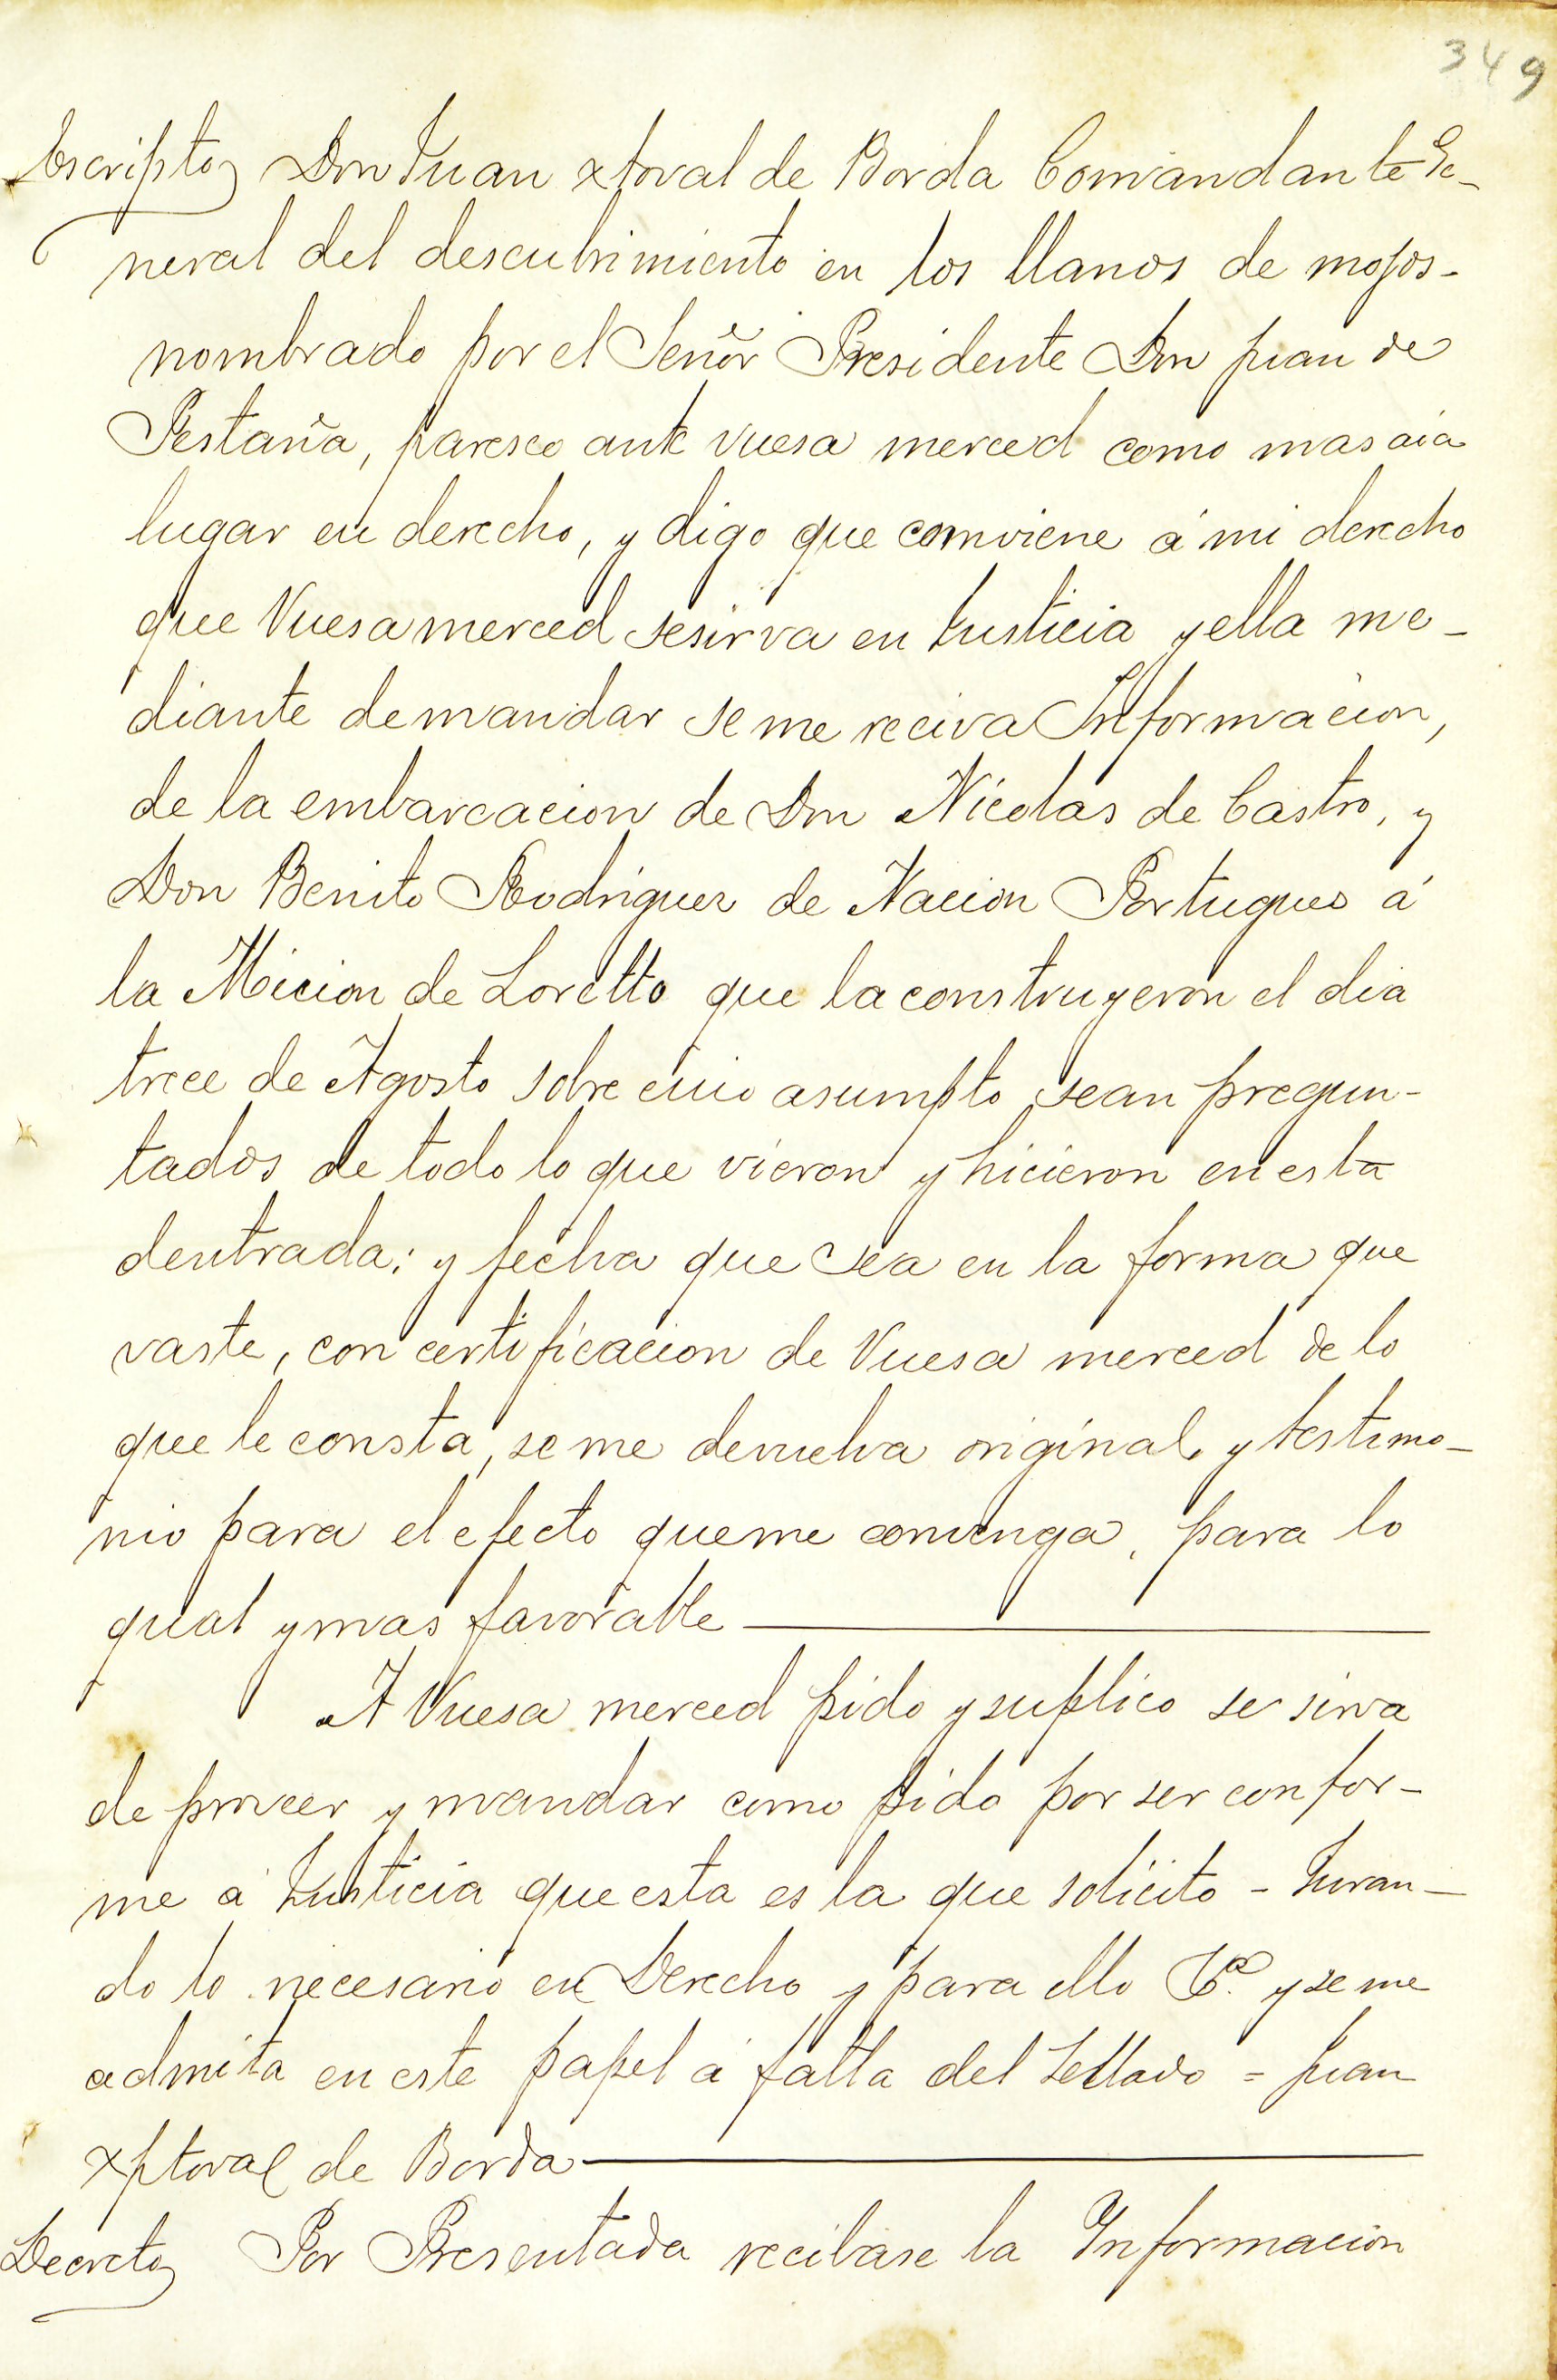 349
Escripto Don Juan xtoval de Borda Comandante Ge-
neral del descubrimiento en los llanos de mojos-
nombrado por el Señor Presidente Don juan de
Pestaña, paresco ante vuesa merced como mas aia
lugar en derecho, y digo que comviene á mi derecho
que Vuesa merced se sirva en Justicia y ella me-
diante de mandar se me reciva Informacion,
de la embarcacion de Don Nicolas de Castro, y
Don Benito Rodriguez de Nacion Portugues á
la Micion de Loretto que la construyeron el dia
trece de Agosto sobre cuio asumpto sean pregun-
tados de todo lo que vieron y hicieron en esta
dentrada: y fecha que sea en la forma que
vaste, con certificacion de Vuesa merced de lo
que le consta, se me devuelva original y testimo-
nio para el efecto que me convenga, para lo
qual y mas favorable
A Vuesa merced pido y suplico se sirva
de proveer y mandar como pido por ser confor-
me á Justicia que esta es la que solicito - Juran-
do lo necesario en Derecho y para ello &a. y se me
admita en este papel á falta del Sellado = juan
xptoval de Borda
Decreto Por Presentada recibase la Informacion